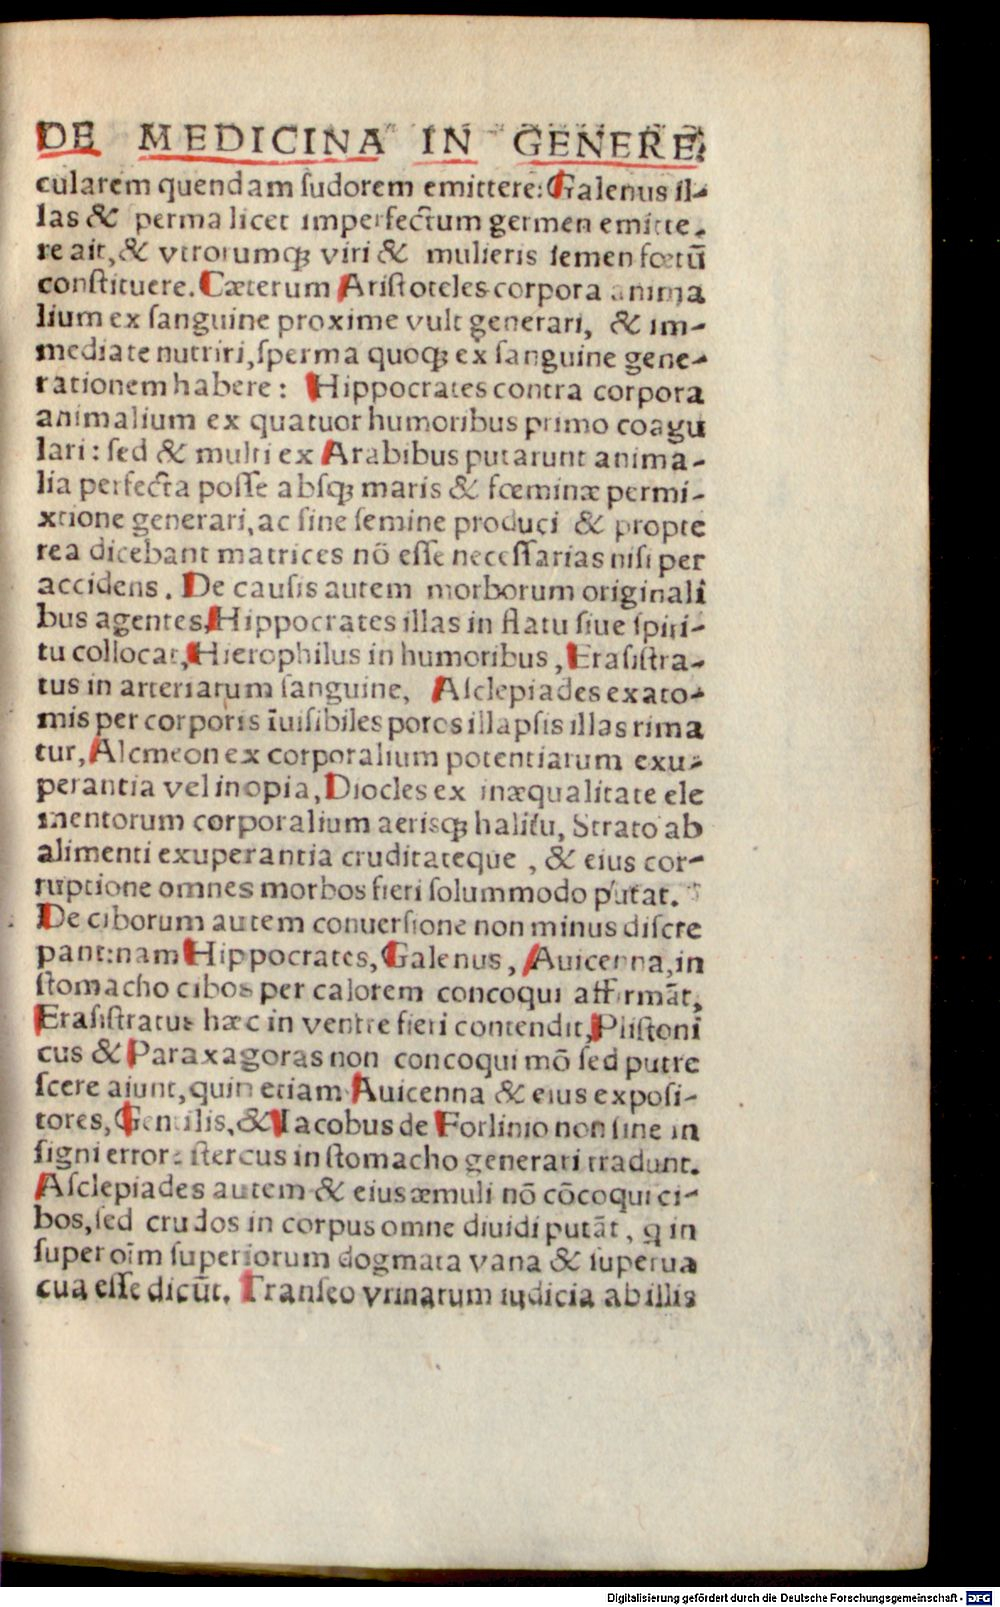 DE MEDICINA IN GENERE.
cularem quendam ſudorem emittere: Galenus il-
las & perma licet imperfectum germen emitte-
re ait, & vtrorumqꝫ viri & mulieris ſemen fœtū
conſtituere. Cæterum Ariſtoteles corpora anima
lium ex ſanguine proxime vult generari, & im-
mediate nutriri, ſperma quoqꝫ ex ſanguine gene-
rationem habere: Hippocrates contra corpora
animalium ex quatuor humoribus primo coagu
lari: ſed & multi ex Arabibus putarunt anima-
lia perfecta poſſe abſqꝫ maris & fœminæ permi-
xtione generari, ac ſine ſemine produci & propte
rea dicebant matrices nō eſſe neceſſarias niſi per
accidens. De cauſis autem morborum originali
bus agentes, Hippocrates illas in flatu ſiue ſpiri-
tu collocat, Hierophilus in humoribus, Eraſiſtra-
tus in arteriarum ſanguine, Aſclepiades ex ato-
mis per corporis īuiſibiles poros illapſis illas rima
tur, Alcmeon ex corporalium potentiarum exu-
perantia vel inopia, Diocles ex inæqualitate ele
mentorum corporalium aerisqꝫ halitu, Strato ab
alimenti exuperantia cruditateque, & eius cor-
ruptione omnes morbos fieri ſolummodo putat.
De ciborum autem conuerſione non minus diſcre
pant: nam Hippocrates, Galenus, Auicenna, in
ſtomacho cibos per calorem concoqui affirmāt,
Eraſiſtratus hæc in ventre fieri contendit, Pliſtoni
cus & Paraxagoras non concoqui mō ſed putre
ſcere aiunt, quin etiam Auicenna & eius expoſi-
tores, Gentilis, & Iacobus de Forlinio non ſine in
ſigni errore ſtercus in ſtomacho generari tradunt.
Aſclepiades autem & eius æmuli nō cōcoqui ci-
bos, ſed crudos in corpus omne diuidi putāt, q in
ſuper oīm ſuperiorum dogmata vana & ſuperua
cua eſſe dicūt. Tranſeo vrinarum iudicia ab illis
Digitalisierung gefördert durch die Deutsche Forschungsgemeinschaft - DFG